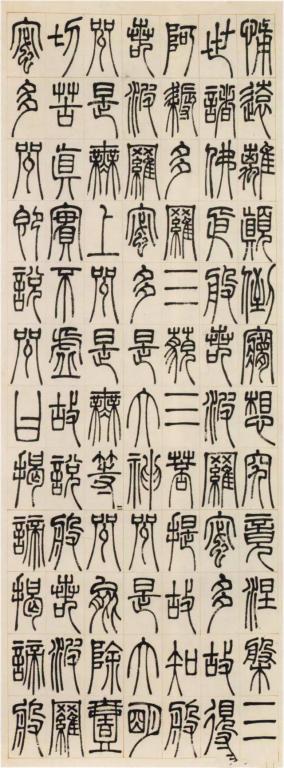 怖遠離顛倒夢想究竟涅槃三
世諸佛依般若波羅蜜多故得
阿耨多羅三藐三菩提故知般
若波羅蜜多是大神咒是大明
咒是無上咒是無等〻咒能除壹
切苦眞實不虛故說般若波羅
蜜多咒即說咒曰揭諦揭諦般